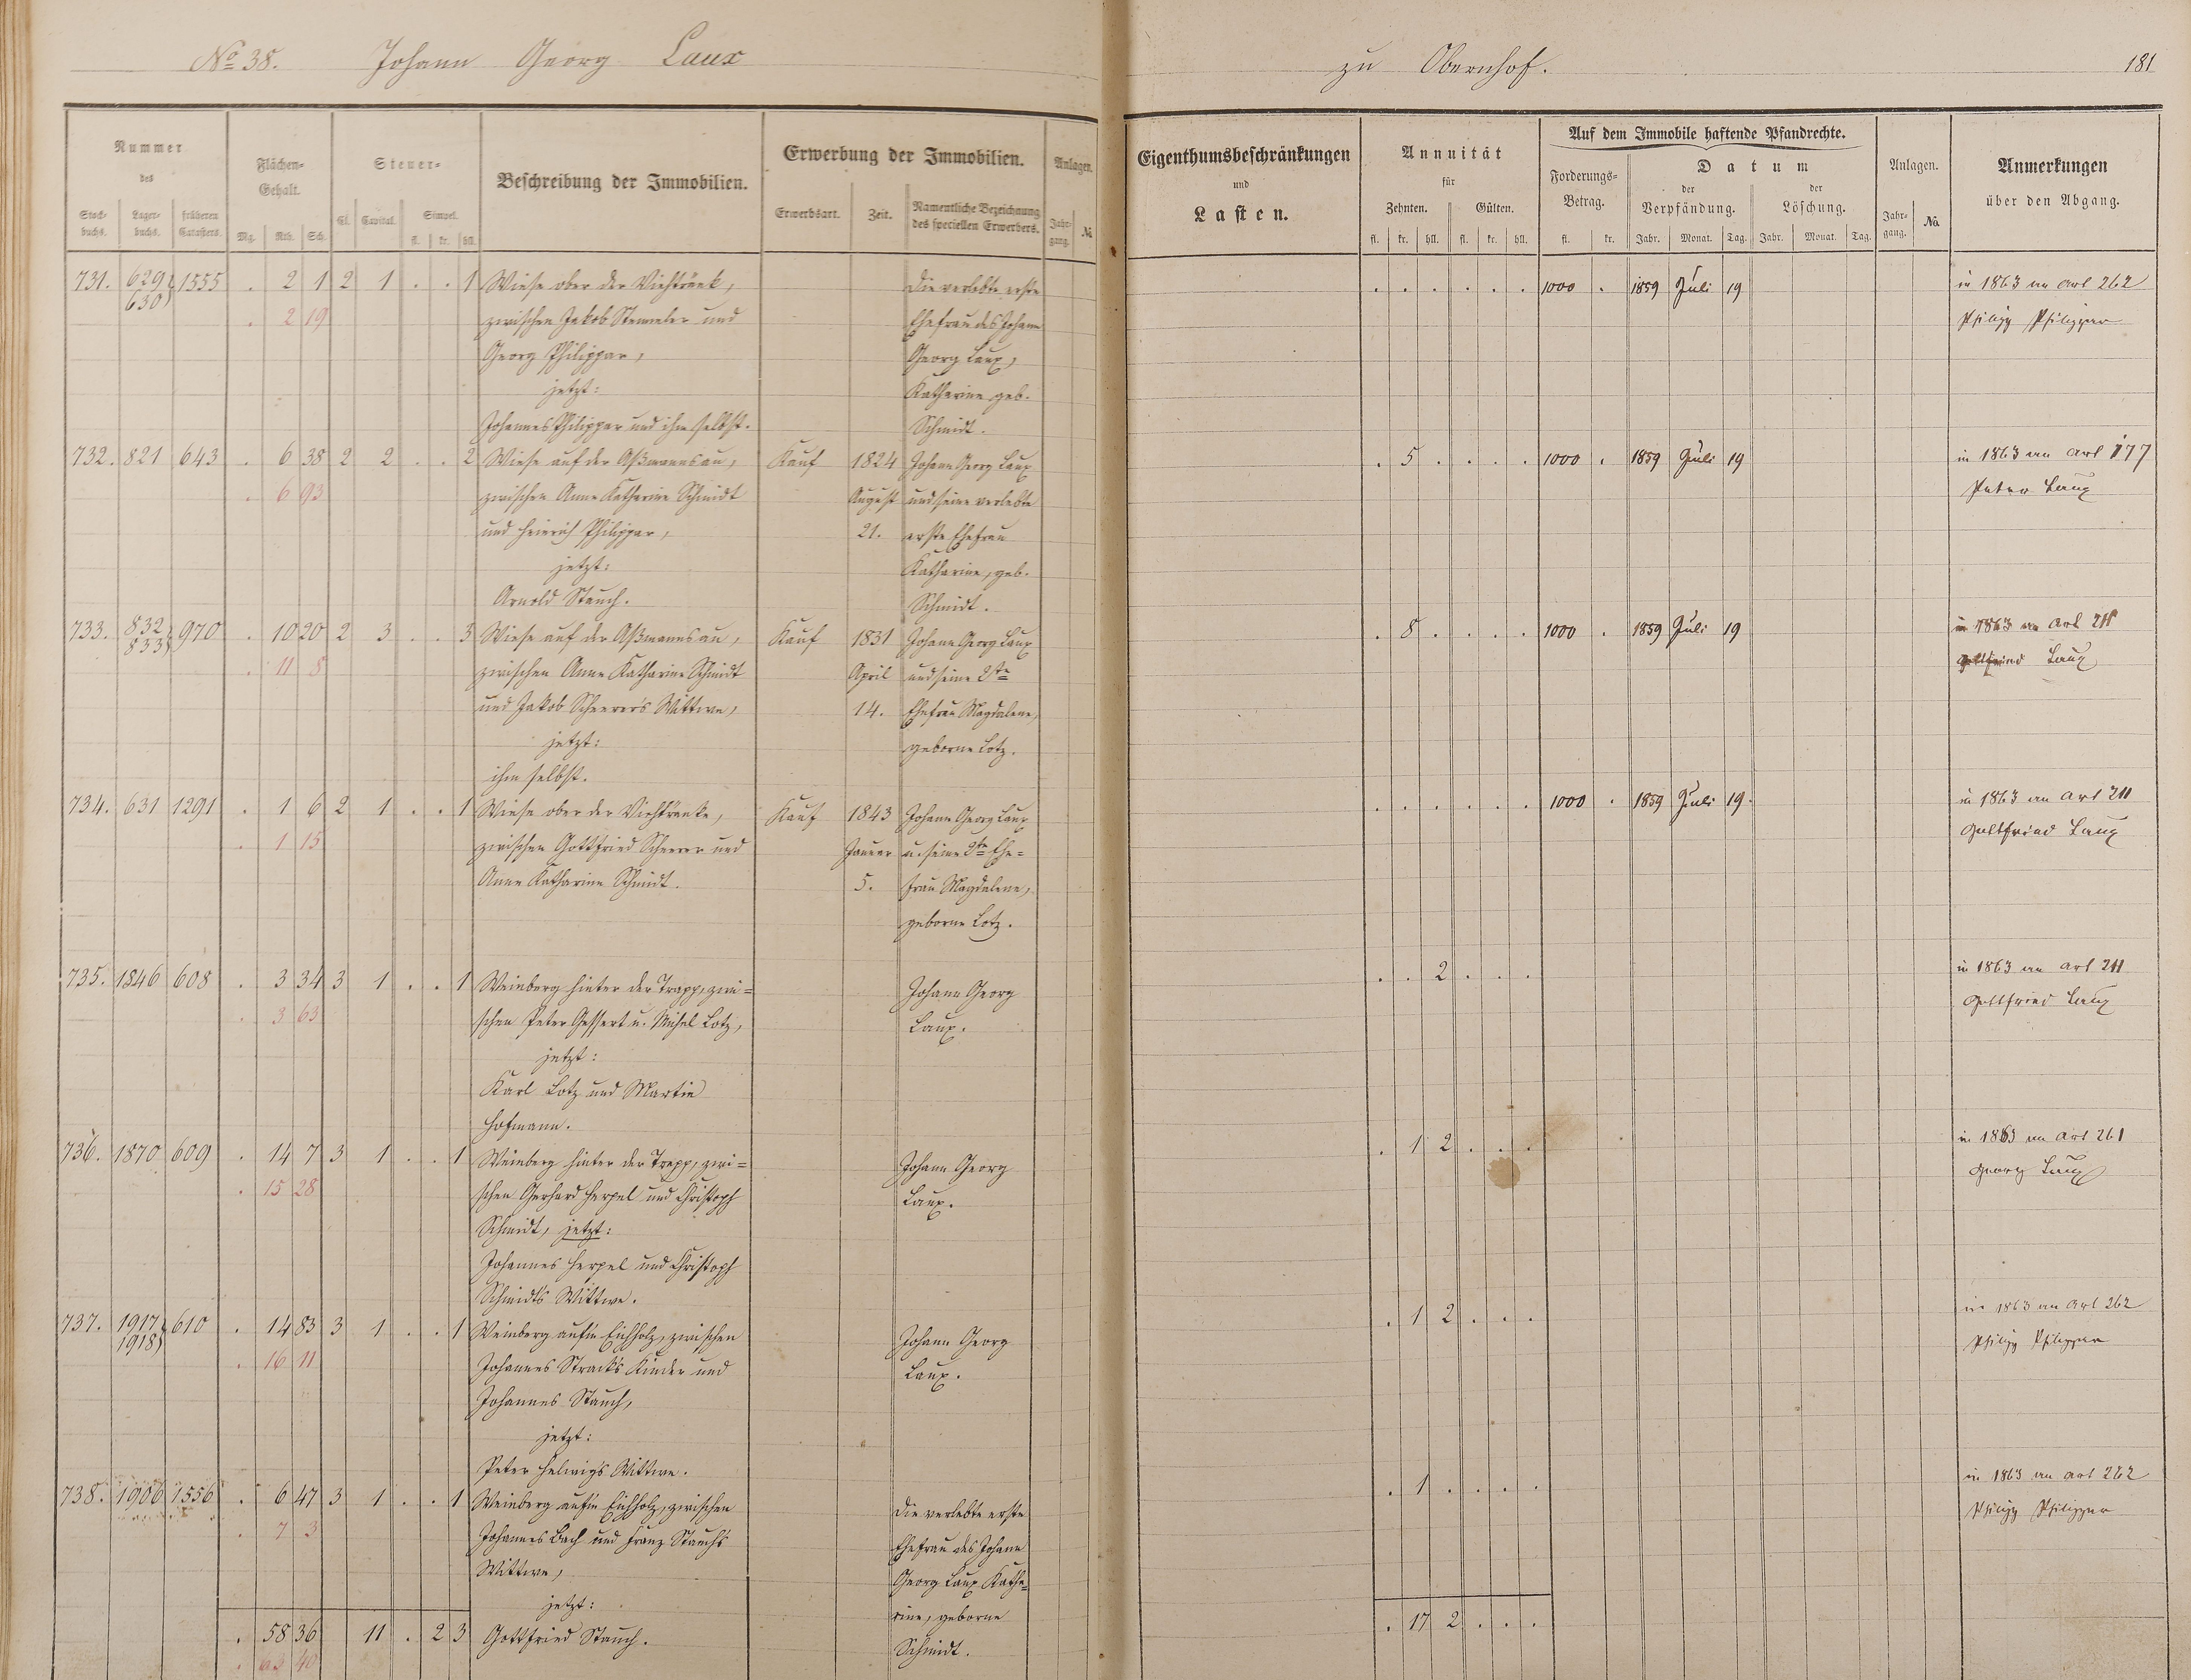 No 38. Johann Georg Laux
zu Obernhof.
181
Nummer
des
Stock-
buchs.
Lager-
buchs.
früheren
Catasters.
Flächen-
Gehalt.
Mg. Rth. Sch.
Steuer-
Cl. Capital. Simpel.
fl. kr. hll.
Beschreibung der Immobilien.
Erwerbung der Immobilien.
Erwerbsart. Zeit.
Namentliche Bezeichnung
des speciellen Erwerbers.
Anlagen.
Jahr-
gang.
№
Eigenthumsbeschränkungen
und
Lasten.
Annuität
für
Zehnten. Gülten.
fl. kr. hll. fl. kr. hll.
Auf dem Immobile haftende Pfandrechte.
Forderungs-
Betrag.
fl. kr.
Datum
der
Verpfändung.
der
Löschung.
Jahr. Monat. Tag. Jahr. Monat. Tag.
Anlagen.
Jahr-
gang.
No.
Anmerkungen
über den Abgang.
731. 629 630 1555 . 2 1 2 1 . . 1
. 2 19
Wiese ober der Viehtränk,
zwischen Jakob Stemmler und
Georg Philippar,
jetzt:
Johannes Philippar und ihm selbst.
die verlebte erste
Ehefrau des Johann
Georg Laux,
Katharine geb.
Schmidt.
. . . . . . 1000 . 1859 Juli 19
in 1863 an Art 262
Philipp Philippar
732. 821 643 . 6 38 2 2 . . 2
. 6 93
Wiese auf der Aßmannsau,
zwischen Anne Katharine Schmidt
und Heinrich Philippar,
jetzt:
Arnold Stauch.
Kauf
1824
August
21.
Johann Georg Laux
und seine verlebte
erste Ehefrau
Katharine, geb.
Schmidt.
. 5 . . . . 1000 . 1859 Juli 19
in 1863 an Art 177
Peter Laux
733. 832 833 970 . 10 20 2 3 . . 3
. 11 8
Wiese auf der Aßmannsau,
zwischen Anne Katharine Schmidt
und Jakob Scheerer's Wittwe,
jetzt:
ihm selbst.
Kauf
1831
April
14.
Johann Georg Laux
und seine 2te
Ehefrau Magdalene,
geborne Lotz.
. 8 . . . . 1000 . 1859 Juli 19
in 1863 an Art 211
Gottfried Laux
734. 631 1291 . 1 6 2 1 . . 1
. 1 15
Wiese ober der Viehtränke,
zwischen Gottfried Scheerer und
Anne Katharine Schmidt.
Kauf
1843
Januar
5.
Johann Georg Laux
u. seine 2te Ehe-
frau Magdalene,
geborne Lotz.
. . . . . . 1000 . 1859 Juli 19.
in 1863 an Art 211
Gottfried Laux
735. 1846 608 . 3 34 3 1 . . 1
. 3 63
Weinberg hinter der Trapp, zwi-
schen Peter Gessert u. Michel Lotz,
jetzt:
Karl Lotz und Martin
Hofmann.
Johann Georg
Laux.
. . 2 . . .
in 1863 an Art 211
Gottfried Laux
736. 1870 609 . 14 7 3 1 . . 1
. 15 28
Weinberg hinter der Trapp, zwi-
schen Gerhard Herpel und Christoph
Schmidt, jetzt:
Johannes Herpel und Christoph
Schmidt's Wittwe.
Johann Georg
Laux.
. 1 2 . . .
in 1863 an Art 261
Georg Laux
737. 1917 1918 610 . 14 83 3 1 . . 1
. 16 11
Weinberg auf'm Eichholz, zwischen
Johannes Strack's Kinder und
Johannes Stauch,
jetzt:
Peter Helwig's Wittwe.
Johann Georg
Laux.
. 1 2 . . .
in 1863 an Art 262
Philipp Philippar
738. 1906 1556 . 6 47 3 1 . . 1
. 7 3
Weinberg auf'm Eichholz, zwischen
Johannes Bach und Franz Stauch's
Wittwe,
jetzt:
Gottfried Stauch.
die verlebte erste
Ehefrau des Johann
Georg Laux Katha-
rine, geborne
Schmidt.
. 1 . . . .
in 1863 an Art 262
Philipp Philippar
. 58 36 11 . 2 3
. 63 40
. 17 2 . . .